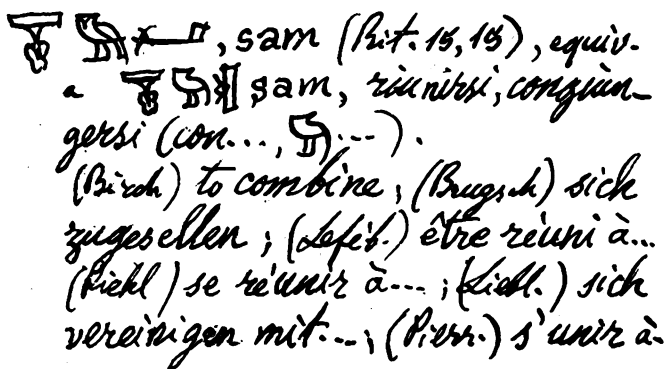 , sam (Rit. 15, 15), equiv.
a sam, riunirsi, congiun-
gersi (con..., ...).
(Birch) to combine; (Brugsch) sich
zugesellen; (Leféb.) être réuni à...
(Piehl) se réunir à...; (Liebl.) sich
vereinigen mit...; (Pierr.) s'unir à.